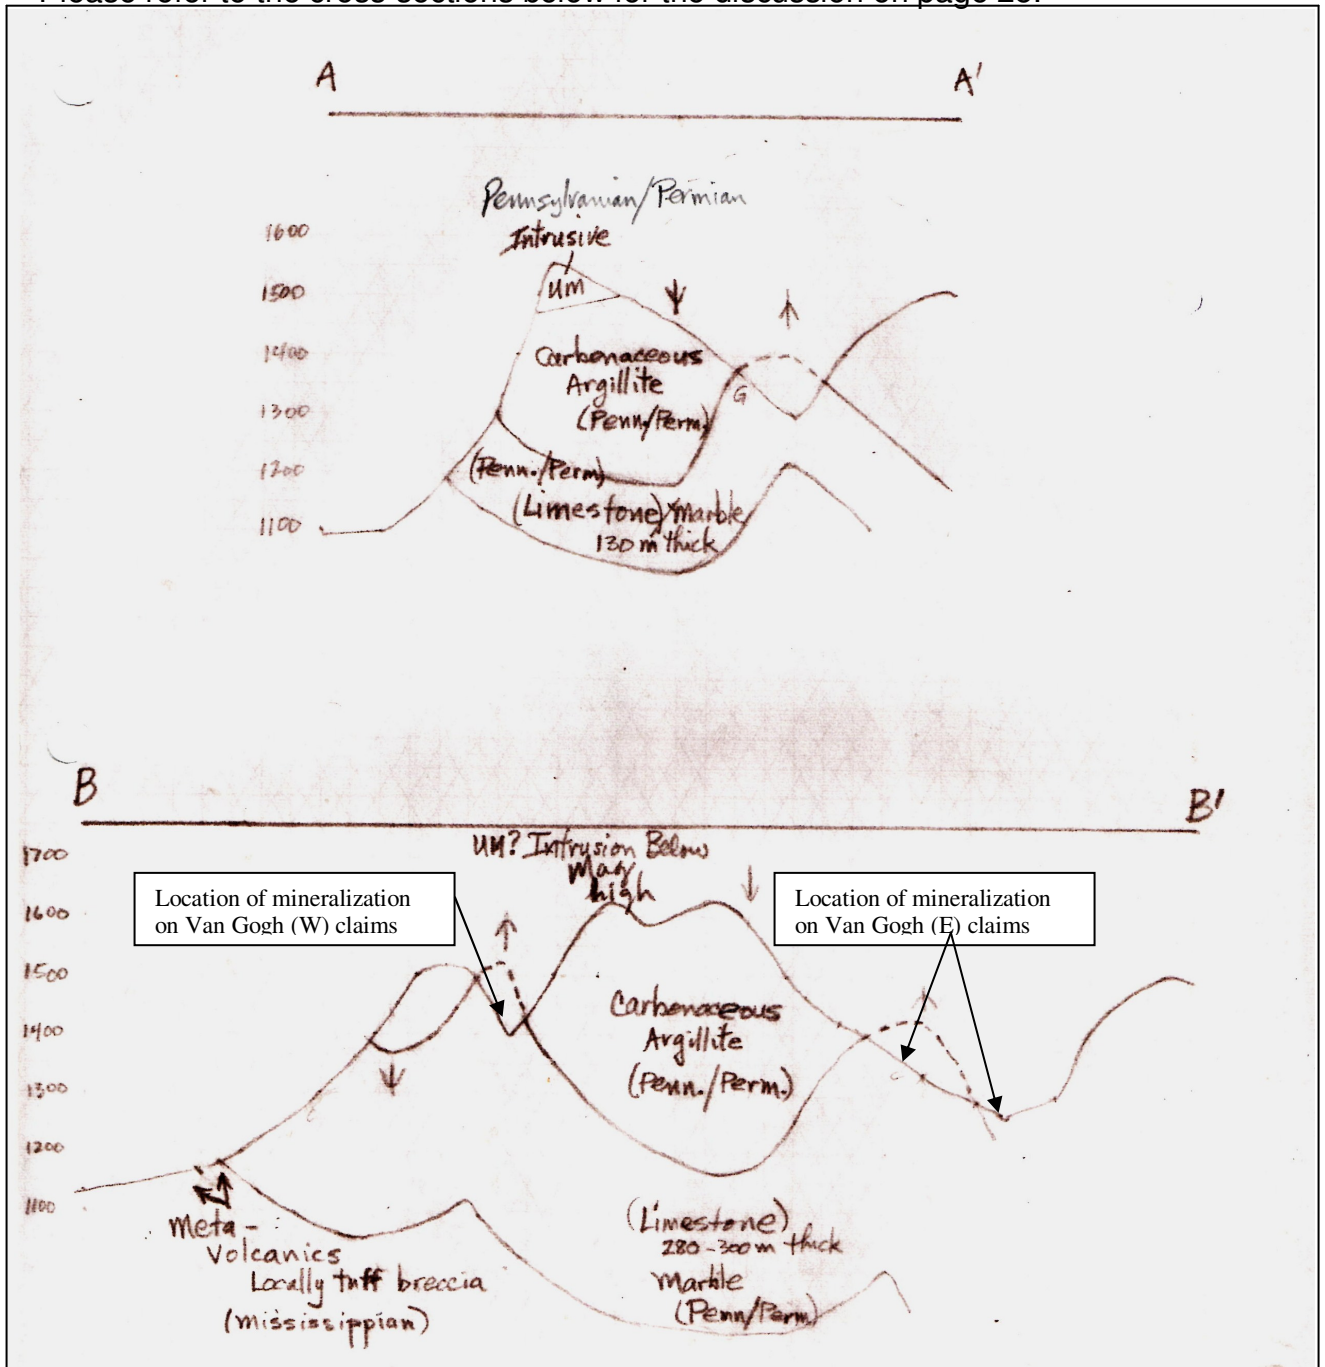 Please refer to the cross-sections below for the discussion on page 28.
A
A'
Pennsylvanian/Permian
Intrusive
um
1600
1500
1400
1300
1200
1100
Carbonaceous
Argillite
(Penn./Perm.)
G
(Penn./Perm)
(Limestone) Marble
130 m thick
B
B'
UM? Intrusion Below
Mag
high
1700
1600
1500
1400
1300
1200
1100
Location of mineralization
on Van Gogh (W) claims
Location of mineralization
on Van Gogh (E) claims
Carbonaceous
Argillite
(Penn./Perm.)
Meta-
Volcanics
Locally tuff breccia
(Mississippian)
(Limestone)
280-300m thick
Marble
(Penn/Perm)